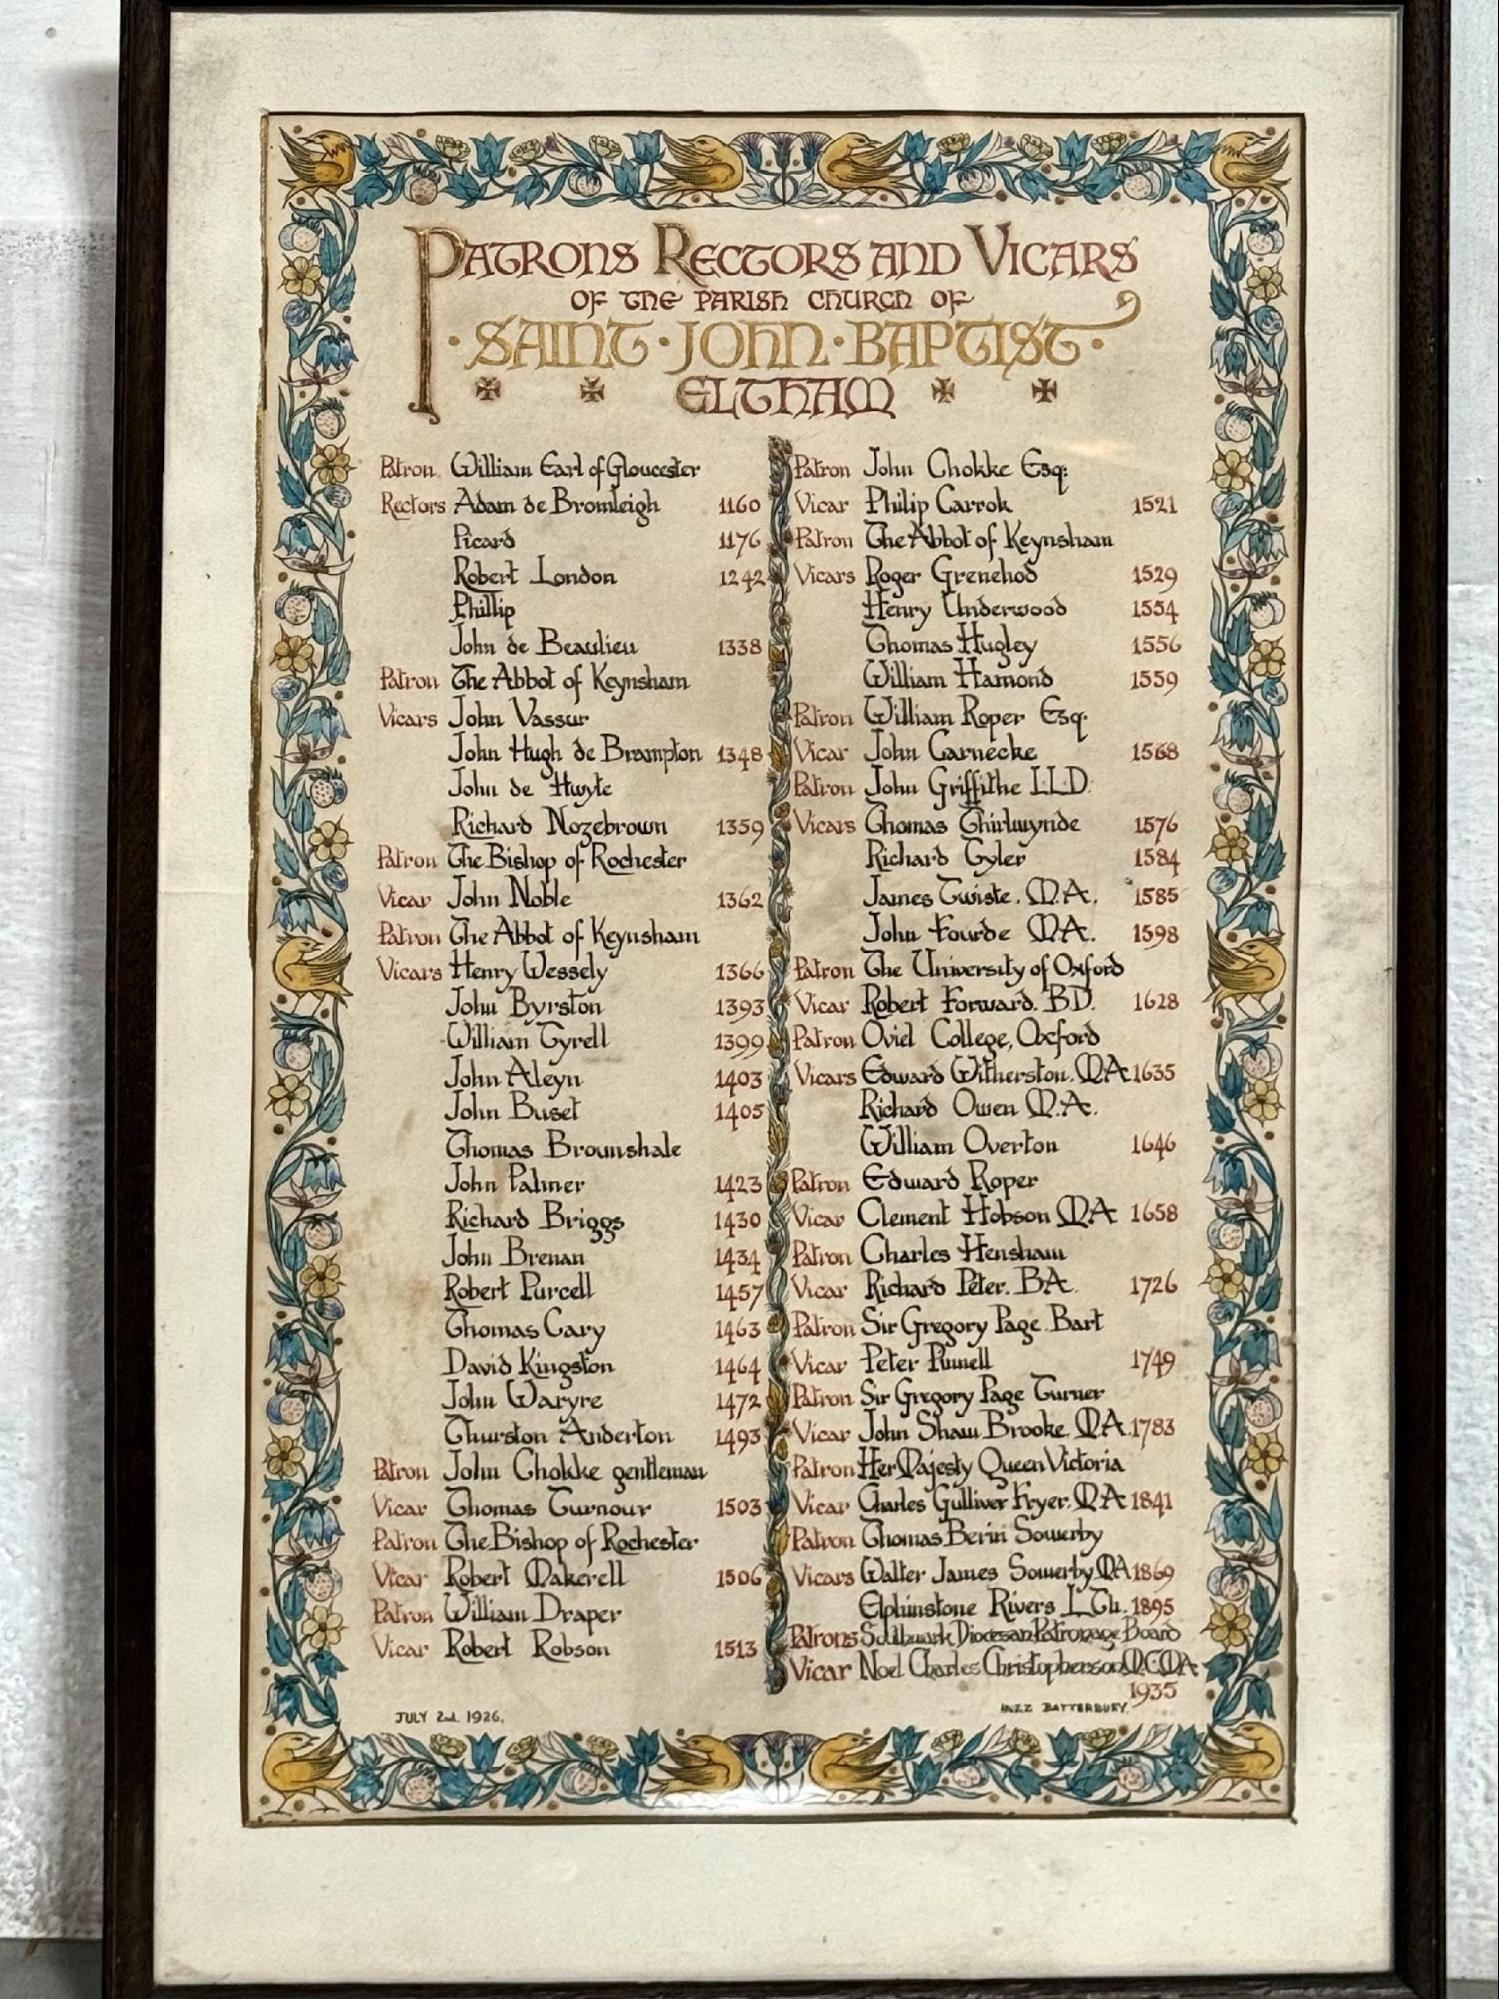 PATRONS RECTORS AND VICARS
OF THE PARISH CHURCH OF
· SAINT · JOHN · BAPTIST ·
ELTHAM
Patron William Earl of Gloucester
Rectors Adam de Bromleigh 1160
Picard 1176
Robert London 1242
Phillip
John de Beaulieu 1338
Patron The Abbot of Keynsham
Vicars John Vassur
John Hugh de Brampton 1348
John de Hwyte
Richard Nozebrown 1359
Patron The Bishop of Rochester
Vicar John Noble 1362
Patron The Abbot of Keynsham
Vicars Henry Wessely 1366
John Byrston 1393
William Tyrell 1399
John Aleyn 1403
John Buset 1405
Thomas Brounshale
John Palmer 1423
Richard Briggs 1430
John Brenan 1434
Robert Purcell 1457
Thomas Cary 1463
David Kingston 1464
John Waryre 1472
Thurston Anderton 1493
Patron John Chokke gentleman
Vicar Thomas Turnour 1503
Patron The Bishop of Rochester
Vicar Robert Makerell 1506
Patron William Draper
Vicar Robert Robson 1513
JULY 2nd. 1926.
Patron John Chokke Esq:
Vicar Philip Carrok 1521
Patron The Abbot of Keynsham
Vicars Roger Grenehod 1529
Henry Underwood 1554
Thomas Hugley 1556
William Hamond 1559
Patron William Roper Esq.
Vicar John Carnecke 1568
Patron John Griffithe L.L.D.
Vicars Thomas Thirlwynde 1576
Richard Tyler 1584
James Twiste. M.A. 1585
John Fourde M.A. 1598
Patron The University of Oxford
Vicar Robert Forward. B.D. 1628
Patron Oviel College, Oxford
Vicars Edward Witherston. M.A. 1635
Richard Owen M.A.
William Overton 1646
Patron Edward Roper
Vicar Clement Hobson M.A. 1658
Patron Charles Hensham
Vicar Richard Peter. B.A. 1726
Patron Sir Gregory Page. Bart
Vicar Peter Pinnell 1749
Patron Sir Gregory Page Turner
Vicar John Shaw Brooke. M.A. 1783
Patron Her Majesty Queen Victoria
Vicar Charles Gulliver Fryer. M.A. 1841
Patron Thomas Berin Sowerby
Vicars Walter James Sowerby M.A 1869
Elphinstone Rivers L.Th. 1895
Patrons Southwark Diocesan Patronage Board
Vicar Noel Charles Christopherson M.C. M.A.
1935
INEZ BATTERBURY.